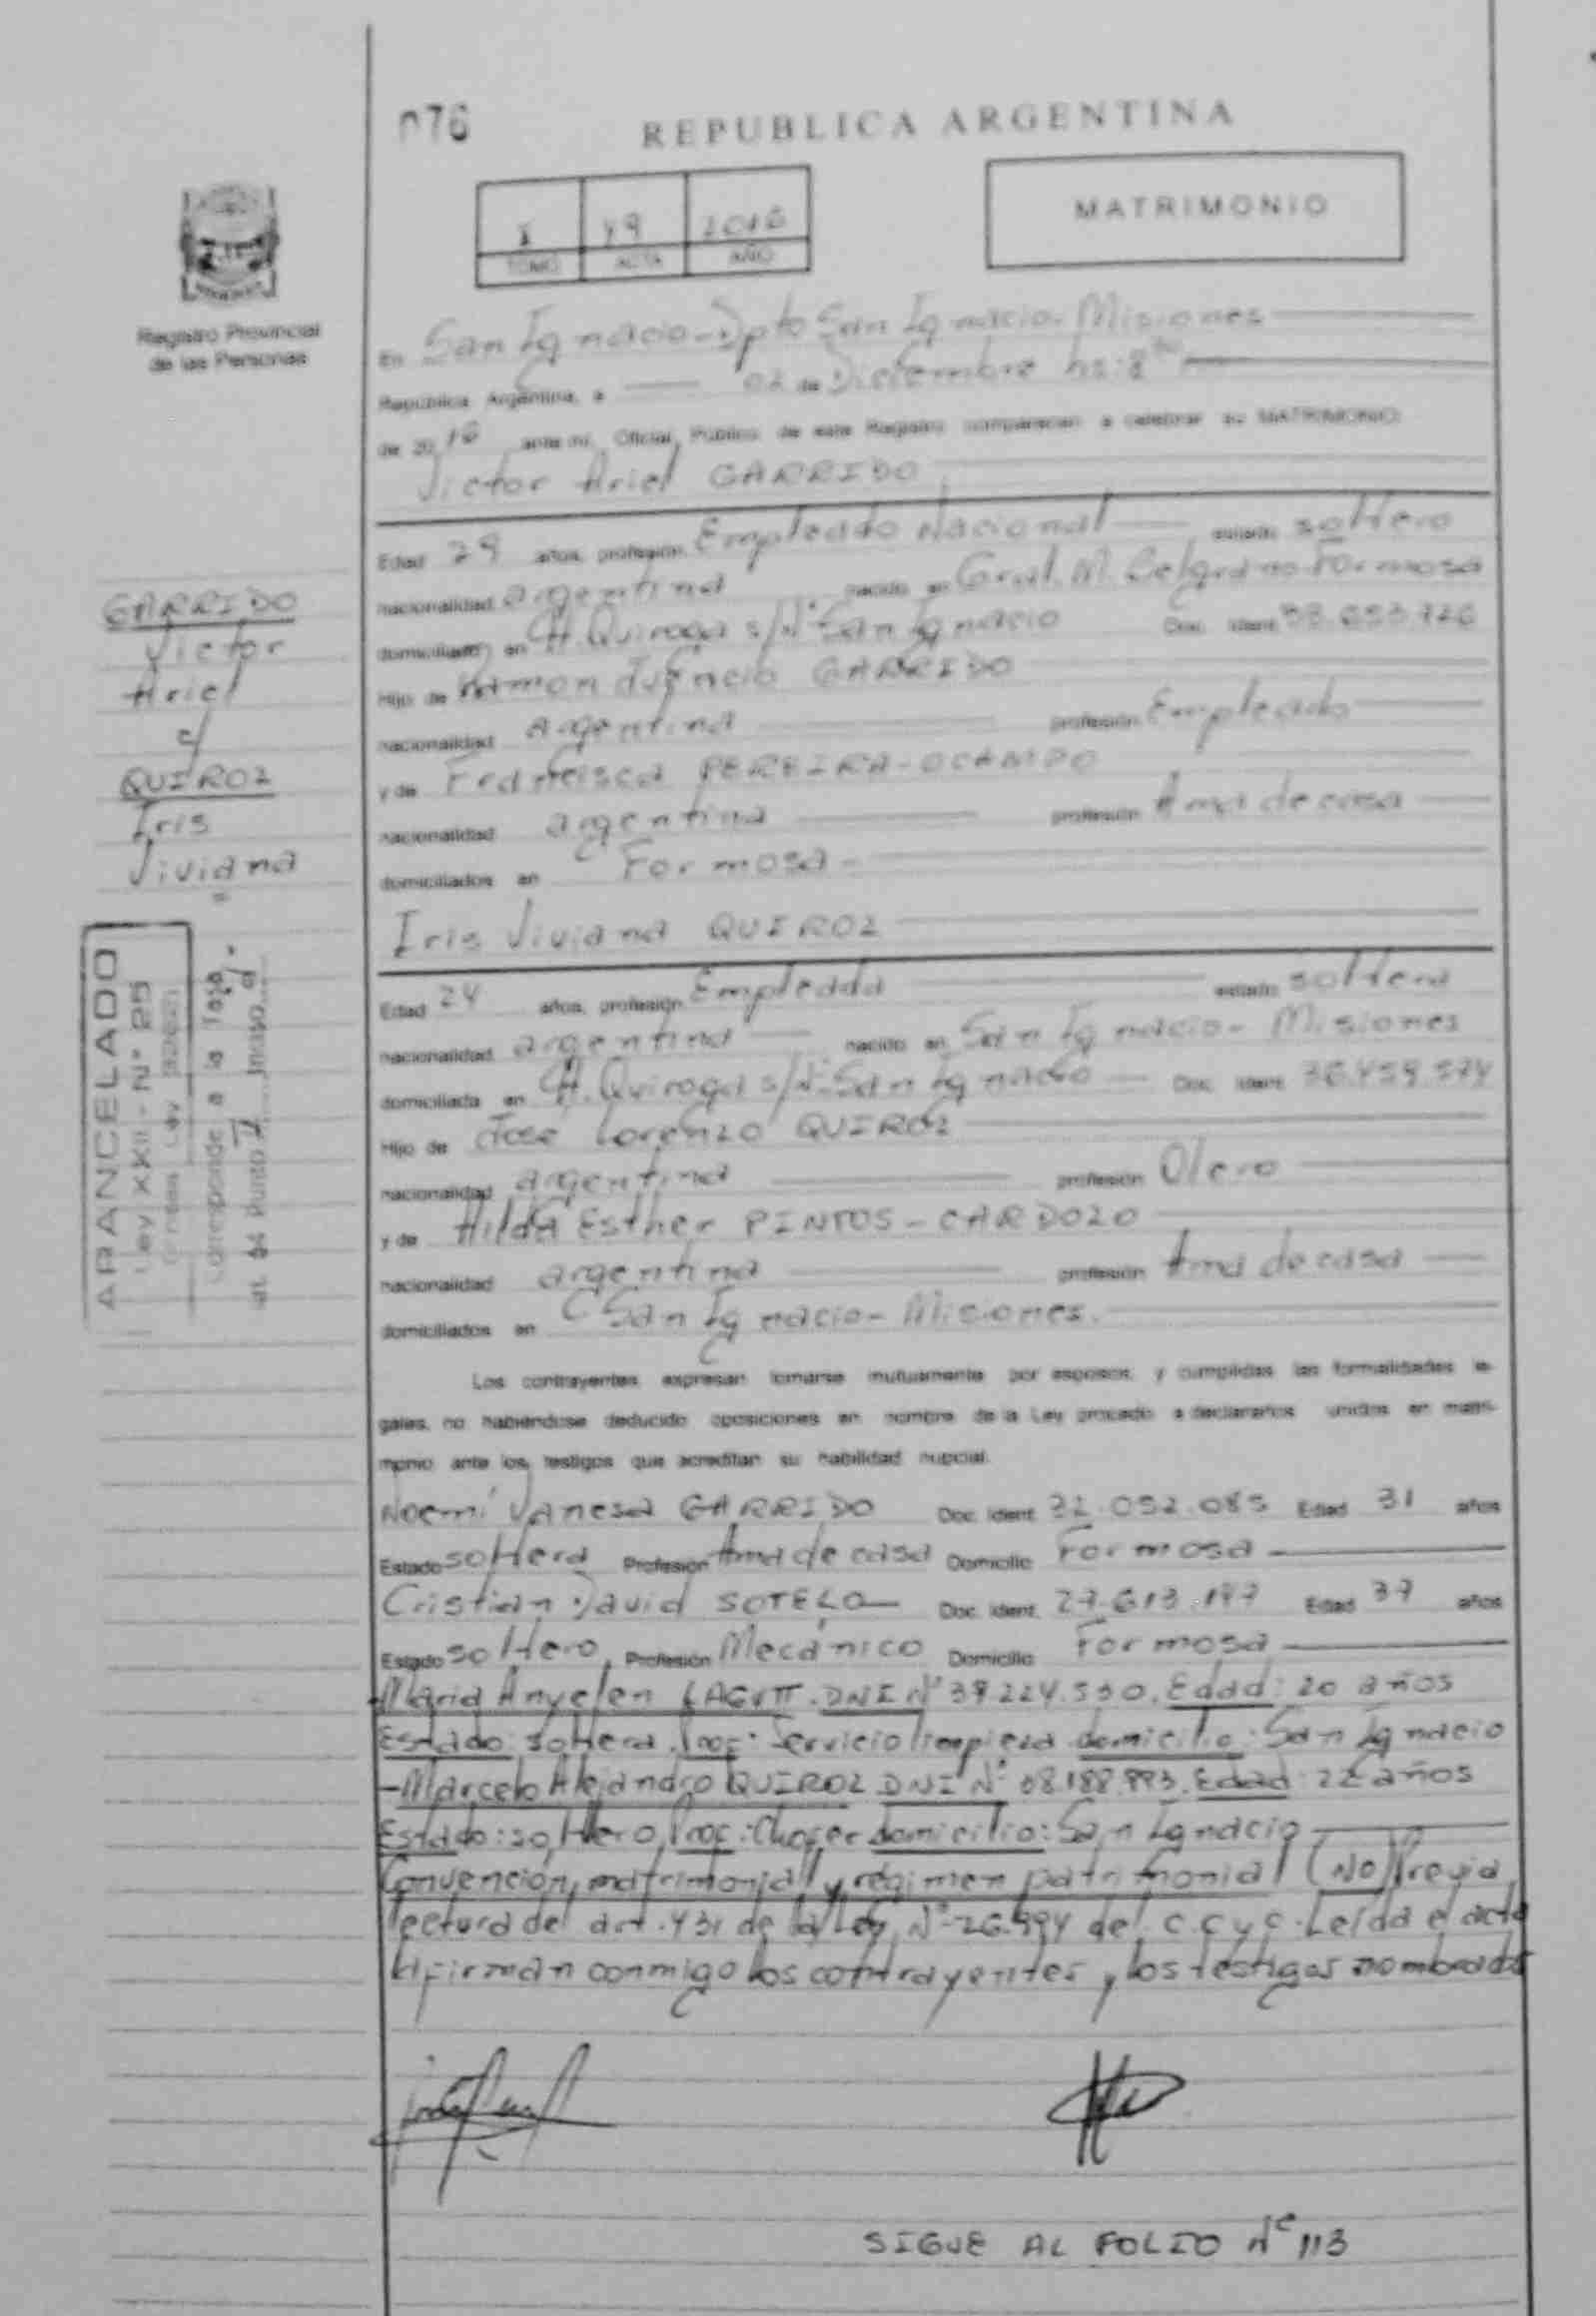 076
REPUBLICA ARGENTINA
MATRIMONIO
I 49 2016
TOMO ACTA AÑO
Registro Provincial
de las Personas
En San Ignacio-Dpto San Ignacio-Misiones
República Argentina, a 02 de Diciembre hs:8
de 2016 ante mí, Oficial Público de este Registro comparecen a celebrar su MATRIMONIO:
Victor Ariel GARRIDO
Edad 29 años, profesión Empleado Nacional estado soltero
nacionalidad argentina nacido en Gral. M. Belgrano-Formosa
domiciliado en H. Quiroga s/Nº San Ignacio Doc. Ident.
Hijo de Ramon GARRIDO
nacionalidad Argentina profesión Empleado
y de Francisca PEREIRA-OCAMPO
nacionalidad argentina profesión Ama de casa
domiciliados en Formosa-
Iris Viviana QUIROZ
Edad 24 años, profesión Empleada estado soltera
nacionalidad argentina nacido en San Ignacio- Misiones
domiciliada en H. Quiroga s/Nº-San Ignacio Doc. Ident. 36.459.574
Hijo de José Lorenzo QUIROZ
nacionalidad argentina profesión Olero
y de Hilda Esther PINTOS-CARDOZO
nacionalidad argentina profesión Ama de casa
domiciliados en San Ignacio-Misiones.
Los contrayentes expresan tomarse mutuamente por esposos, y cumplidas las formalidades le-
gales, no habiéndose deducido oposiciones en nombre de la Ley procedo a declararlos unidos en matri-
monio ante los testigos que acreditan su habilidad nupcial.
Noemí Vanesa GARRIDO Doc. Ident. 32.052.085 Edad 31 años
Estado soltera Profesión Ama de casa Domicilio Formosa
Cristian David SOTELO Doc. Ident. 27.613.197 Edad 37 años
Estado soltero Profesión Mecánico Domicilio Formosa
-Maria Anyelen DNI Nº 39.224.530. Edad: 20 años
Estado: soltera. Prof: Servicio limpieza domicilio: San Ignacio
-Marcelo Alejandro QUIROZ DNI Nº 38.188.993. Edad: 22 años
Estado: soltero, Prof: Chofer domicilio: San Ignacio
Convención matrimonial y régimen patrimonial (NO) Previa
lectura del art. 431 de la Ley Nº-26.994 del C C y C. Leída el acta
la firman conmigo los contrayentes y los testigos nombrados
SIGUE AL FOLIO Nº 113
GARRIDO
Victor
Ariel
c/
QUIROZ
Iris
Viviana
ARANCELADO
Ley XXII - Nº 25
Corresponde a la Tasa
Punto II Inciso d